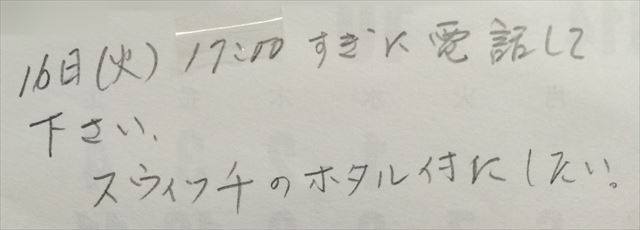 16日(火) 17:00 すぎに電話して
下さい、
スウィッチのホタル付にしたい。